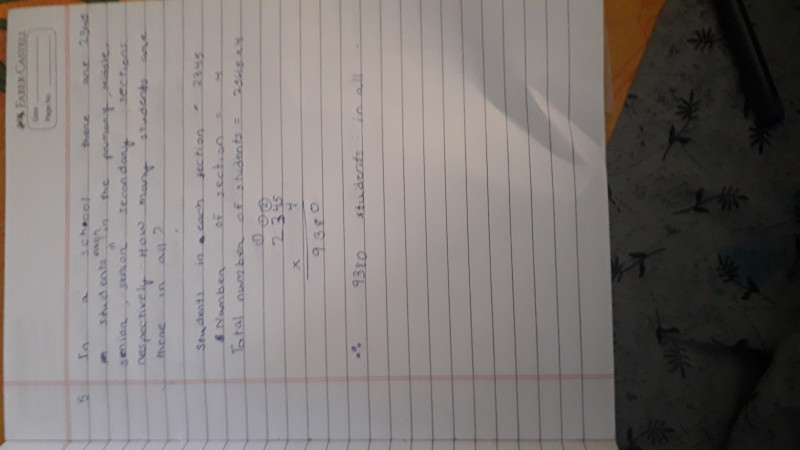 FABER-CASTELL
Date
Page No.
5 In a school there are 2345
students each in the primary, middle,
senior, senior secondary sections
respectively How many students are
there in all?
Students in each section = 2345
Number of section = 4
Total number of students = 2345 x 4
① ① ②
2 3 4 5
x 4
9 3 8 0
∴ 9380 students in all.